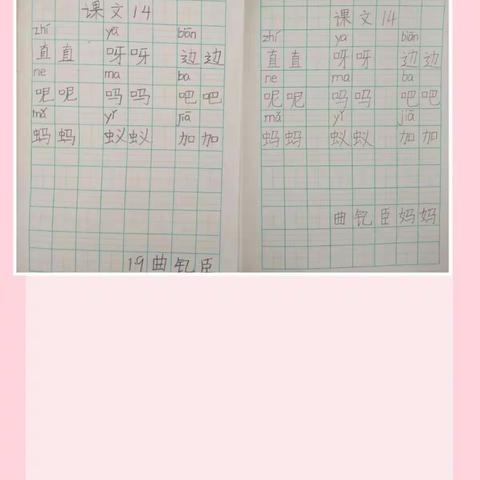 课文14
zhí yā biān
直直 呀呀 边边
ne ma ba
呢呢 吗吗 吧吧
mǎ yǐ jiā
蚂蚂 蚁蚁 加加
19曲钇臣
课文14
zhí ya biān
直直 呀呀 边边
ne ma ba
呢呢 吗吗 吧吧
mǎ yǐ jiā
蚂蚂 蚁蚁 加加
曲钇臣妈妈